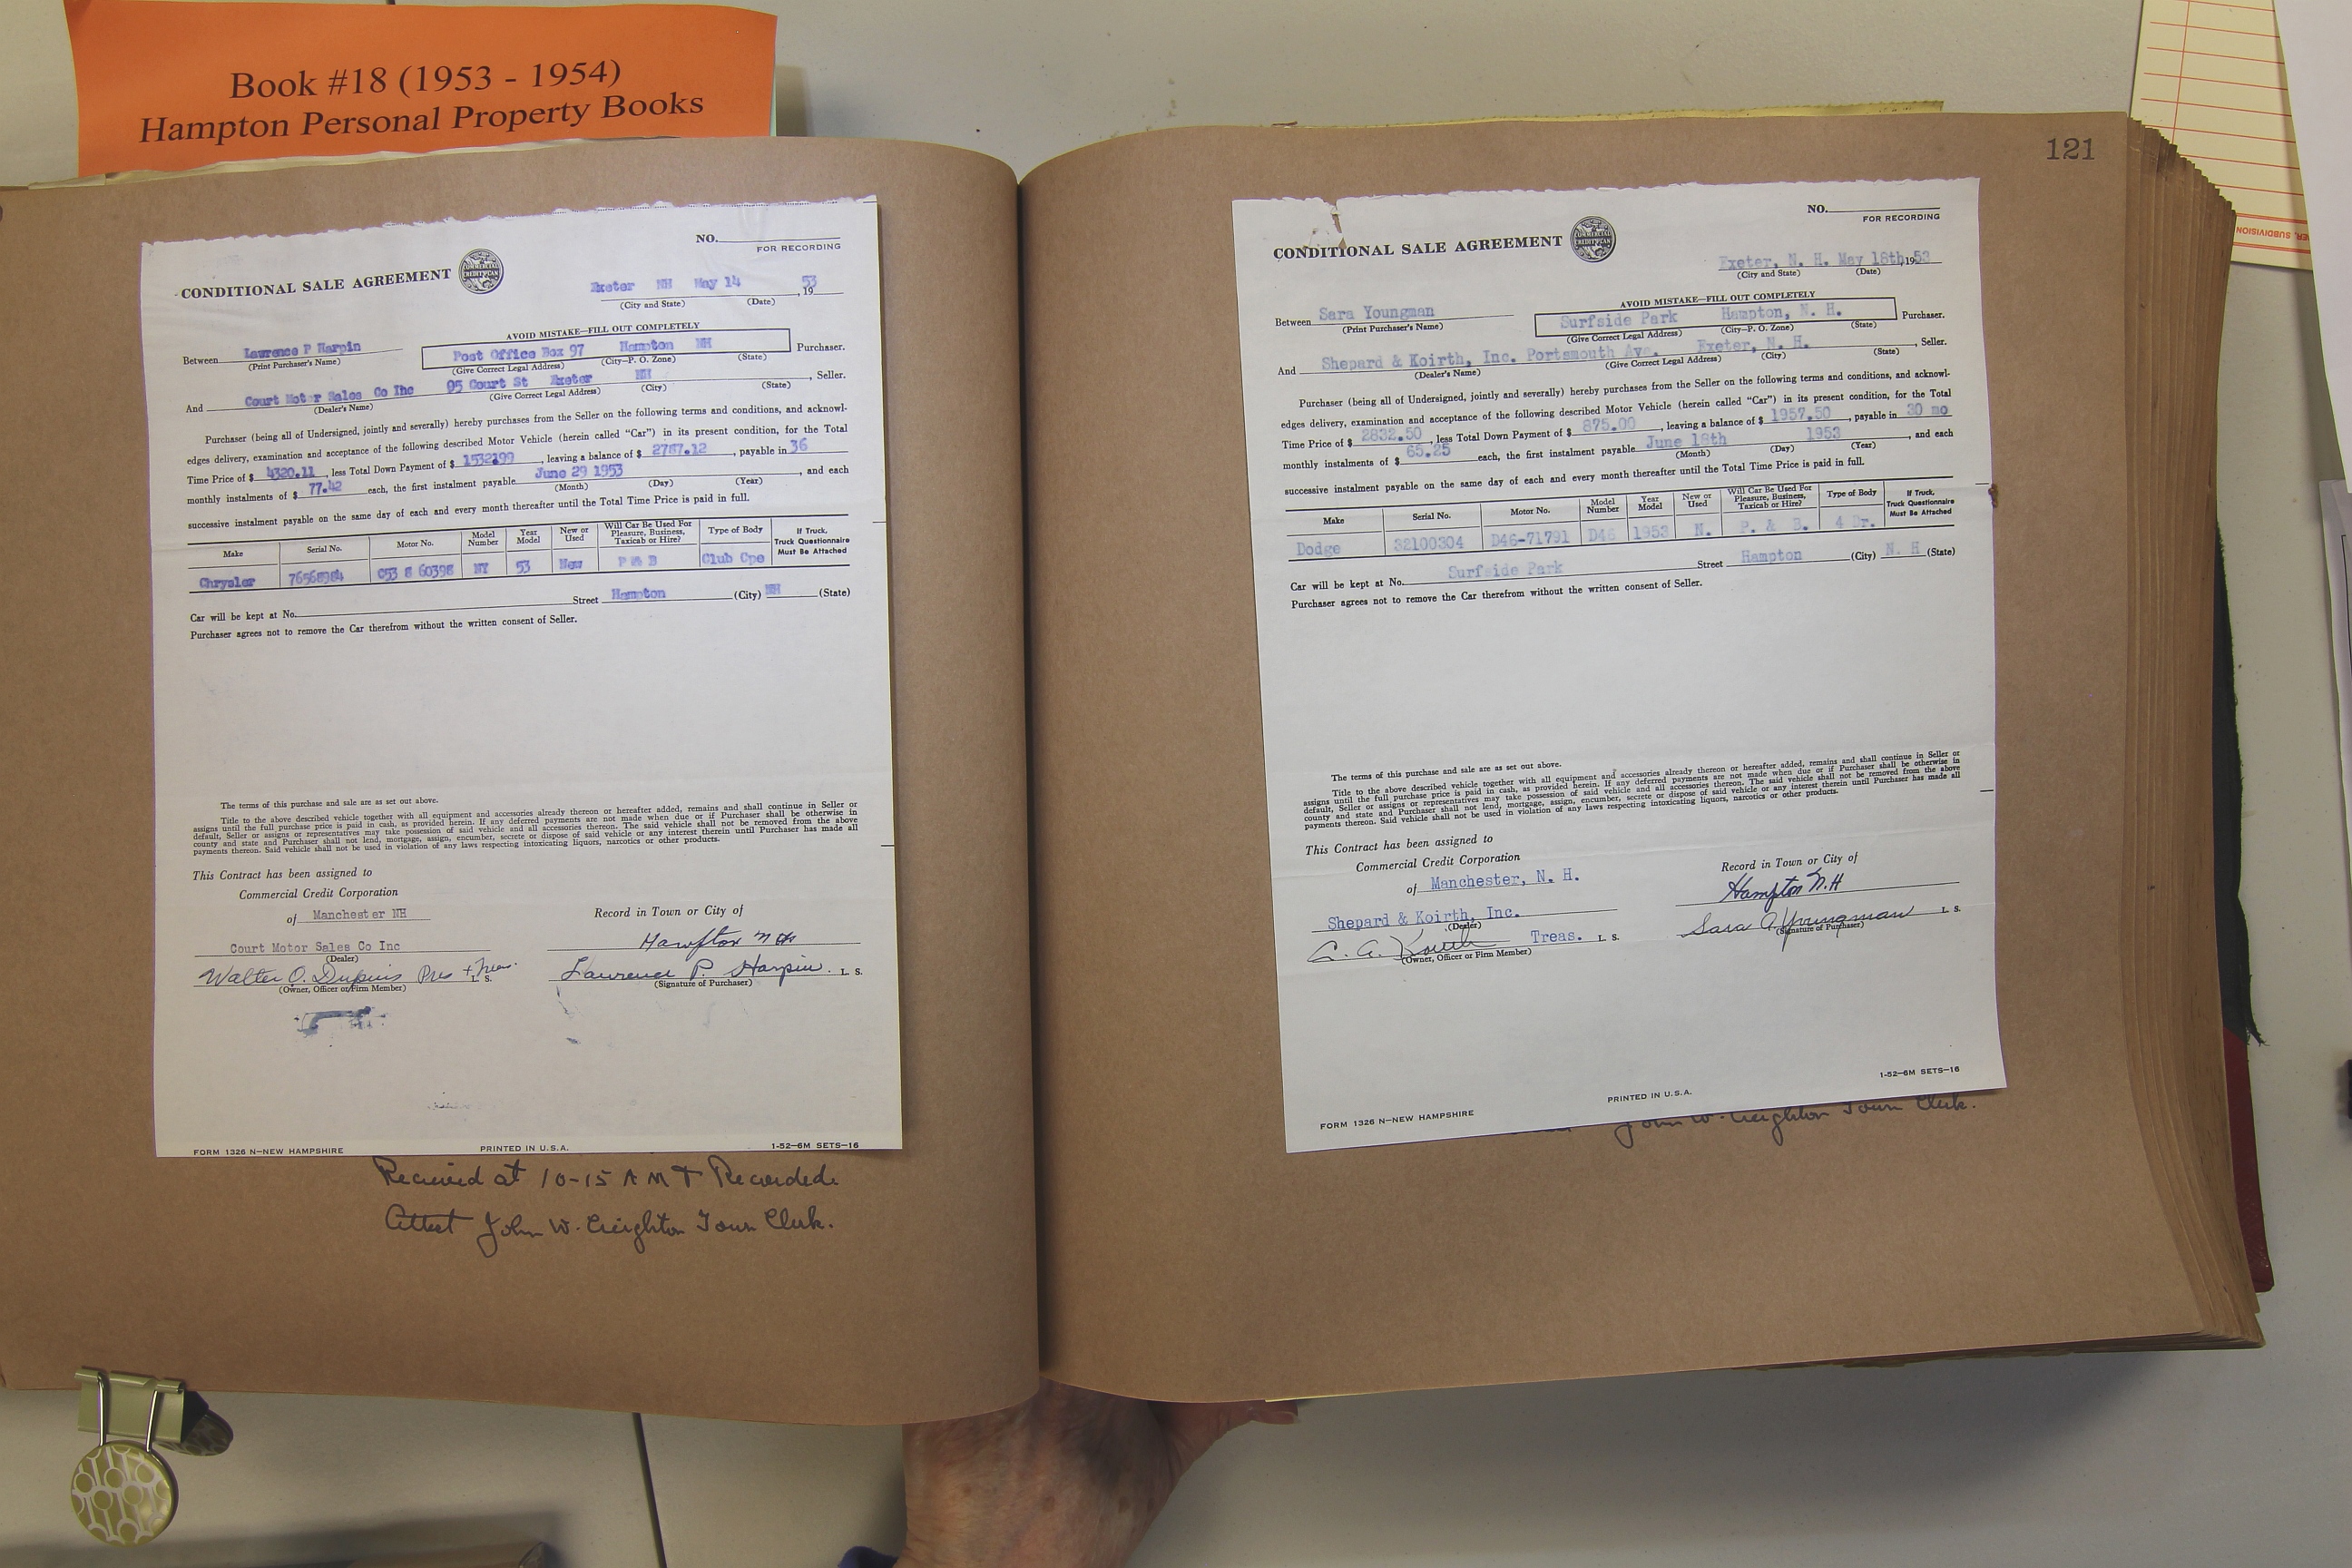 Book #18 (1953 - 1954)
Hampton Personal Property Books
NO.
FOR RECORDING
CONDITIONAL SALE AGREEMENT
COMMERCIAL CREDIT
Exeter NH May 14 , 19 53
(City and State) (Date)
AVOID MISTAKE—FILL OUT COMPLETELY
Between Lawrence P Harpin Post Office Box 97 Hampton NH Purchaser.
(Print Purchaser's Name) (Give Correct Legal Address) (City—P. O. Zone) (State)
And Court Motor Sales Co Inc 95 Court St Exeter NH , Seller.
(Dealer's Name) (Give Correct Legal Address) (City) (State)
Purchaser (being all of Undersigned, jointly and severally) hereby purchases from the Seller on the following terms and conditions, and acknowl-
edges delivery, examination and acceptance of the following described Motor Vehicle (herein called "Car") in its present condition, for the Total
Time Price of $ 4320.11 , less Total Down Payment of $ 1532.99 , leaving a balance of $ 2787.12 , payable in 36
monthly instalments of $ 77.42 each, the first instalment payable June 29 1953 , and each
(Month) (Day) (Year)
successive instalment payable on the same day of each and every month thereafter until the Total Time Price is paid in full.
Make Serial No. Motor No. Model Number Year Model New or Used Will Car Be Used For Pleasure, Business, Taxicab or Hire? Type of Body If Truck, Truck Questionnaire Must Be Attached
Chrysler C53 8 60398 NY 53 New P & B Club Cpe
Car will be kept at No. Street Hampton (City) NH (State)
Purchaser agrees not to remove the Car therefrom without the written consent of Seller.
The terms of this purchase and sale are as set out above.
Title to the above described vehicle together with all equipment and accessories already thereon or hereafter added, remains and shall continue in Seller or
assigns until the full purchase price is paid in cash, as provided herein. If any deferred payments are not made when due or if Purchaser shall be otherwise in
default, Seller or assigns or representatives may take possession of said vehicle and all accessories thereon. The said vehicle shall not be removed from the above
county and state and Purchaser shall not lend, mortgage, assign, encumber, secrete or dispose of said vehicle or any interest therein until Purchaser has made all
payments thereon. Said vehicle shall not be used in violation of any laws respecting intoxicating liquors, narcotics or other products.
This Contract has been assigned to
Commercial Credit Corporation
of Manchester NH
Record in Town or City of
Hampton NH
Court Motor Sales Co Inc
(Dealer)
Walter O. Dupuis Pres + Treas. L. S.
(Owner, Officer or Firm Member)
Laurence P. Harpin. L. S.
(Signature of Purchaser)
FORM 1326 N—NEW HAMPSHIRE PRINTED IN U.S.A. 1-52—6M SETS—16
Received at 10-15 A M & Recorded.
Attest John W. Creighton Town Clerk.
121
NO.
FOR RECORDING
CONDITIONAL SALE AGREEMENT
COMMERCIAL CREDIT
Exeter, N. H. May 18th, 1953
(City and State) (Date)
AVOID MISTAKE—FILL OUT COMPLETELY
Between Sara Youngman Surfside Park Hampton, N. H. Purchaser.
(Print Purchaser's Name) (Give Correct Legal Address) (City—P. O. Zone) (State)
And Shepard & Koirth, Inc. Portsmouth Ave. Exeter, N. H. , Seller.
(Dealer's Name) (Give Correct Legal Address) (City) (State)
Purchaser (being all of Undersigned, jointly and severally) hereby purchases from the Seller on the following terms and conditions, and acknowl-
edges delivery, examination and acceptance of the following described Motor Vehicle (herein called "Car") in its present condition, for the Total
Time Price of $ 2832.50 , less Total Down Payment of $ 875.00 , leaving a balance of $ 1957.50 , payable in 30 mo
monthly instalments of $ 65.25 each, the first instalment payable June 18th 1953 , and each
(Month) (Day) (Year)
successive instalment payable on the same day of each and every month thereafter until the Total Time Price is paid in full.
Make Serial No. Motor No. Model Number Year Model New or Used Will Car Be Used For Pleasure, Business, Taxicab or Hire? Type of Body If Truck, Truck Questionnaire Must Be Attached
Dodge 32100304 D46-71791 D46 1953 N. P. & B. 4 Dr.
Car will be kept at No. Surfside Park Street Hampton (City) N. H (State)
Purchaser agrees not to remove the Car therefrom without the written consent of Seller.
The terms of this purchase and sale are as set out above.
Title to the above described vehicle together with all equipment and accessories already thereon or hereafter added, remains and shall continue in Seller or
assigns until the full purchase price is paid in cash, as provided herein. If any deferred payments are not made when due or if Purchaser shall be otherwise in
default, Seller or assigns or representatives may take possession of said vehicle and all accessories thereon. The said vehicle shall not be removed from the above
county and state and Purchaser shall not lend, mortgage, assign, encumber, secrete or dispose of said vehicle or any interest therein until Purchaser has made all
payments thereon. Said vehicle shall not be used in violation of any laws respecting intoxicating liquors, narcotics or other products.
This Contract has been assigned to
Commercial Credit Corporation
of Manchester, N. H.
Record in Town or City of
Hampton N.H
Shepard & Koirth, Inc.
(Dealer)
Treas. L. S.
(Owner, Officer or Firm Member)
Sara A Youngman L. S.
(Signature of Purchaser)
FORM 1326 N—NEW HAMPSHIRE PRINTED IN U.S.A. 1-52—6M SETS—16
John W. Creighton Town Clerk.
SUBDIVISION